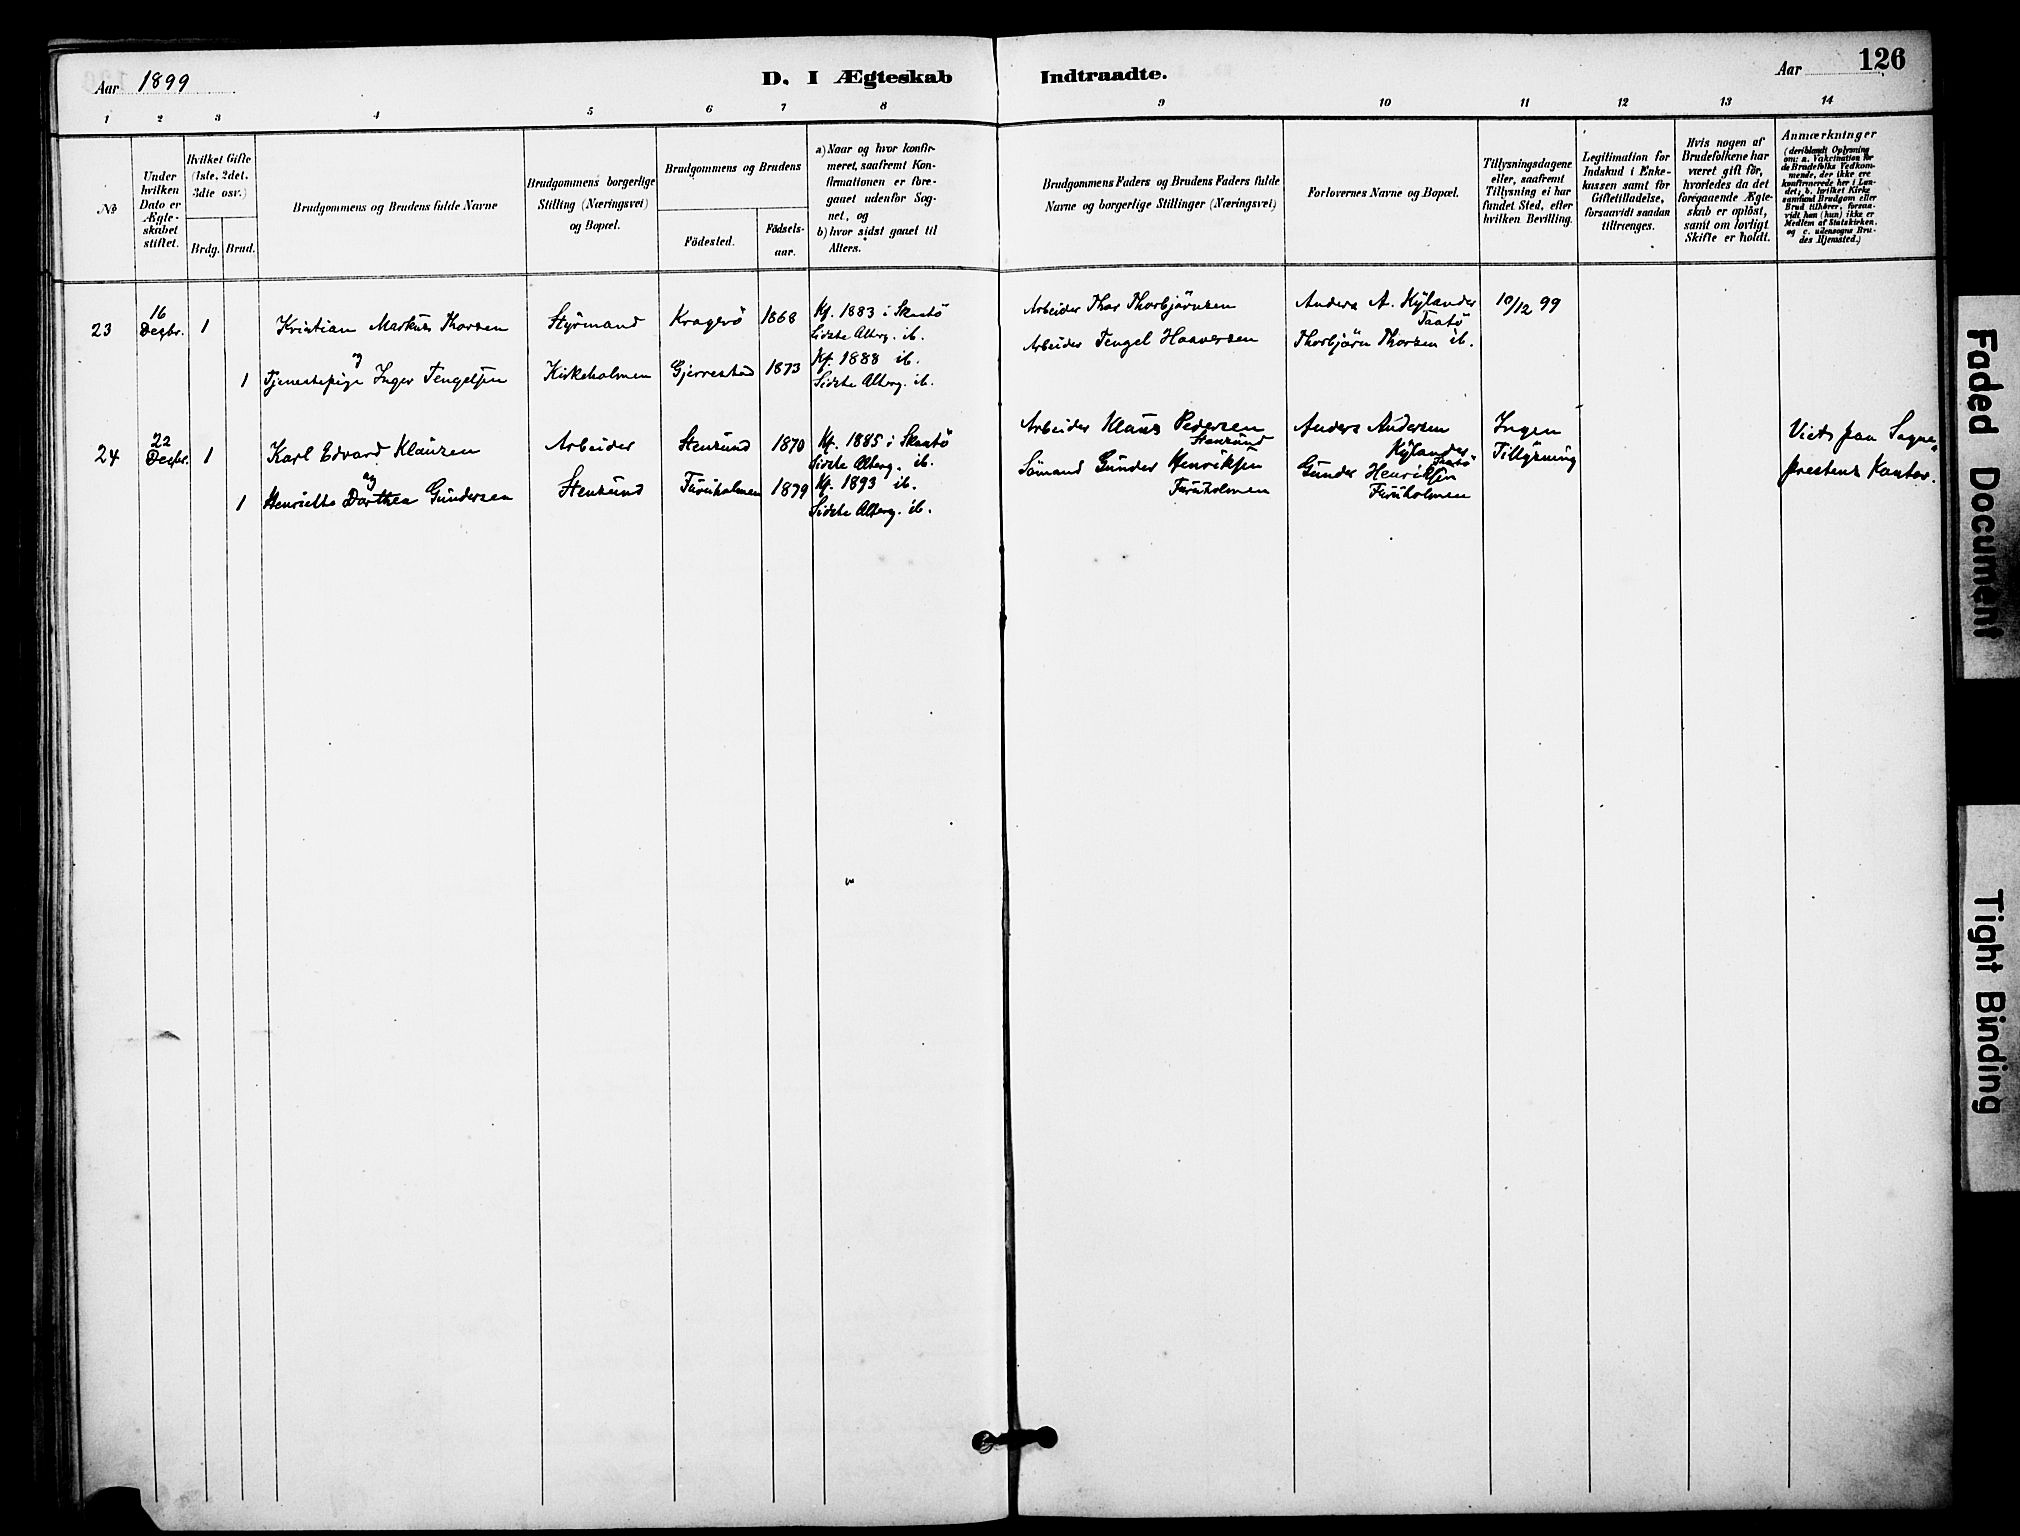 Aar 1899
D. I Ægteskab
Indtraadte.
Aar
126
1 2 3 4 5 6 7 8 9 10 11 12 13 14
No
Under
hvilken
Dato er
Ægte-
skabet
stiftet.
Hvilket Gifte
(1ste, 2det.
3die osv.)
Brdg. Brud.
Brudgommens og Brudens fulde Navne
Brudgommens borgerlige
Stilling (Næringsvei)
og Bopæl.
Brudgommens og Brudens
Födested.
Födsels-
aar.
a) Naar og hvor konfir-
meret, saafremt Kon-
firmationen er fore-
gaaet udenfor Sog-
net, og
b) hvor sidst gaaet til
Alters.
Brudgommens Faders og Brudens Faders fulde
Navne og borgerlige Stillinger (Næringsvei)
Forlovernes Navne og Bopæl.
Tillysningsdagene
eller, saafremt
Tillysning ei har
fundet Sted, efter
hvilken Bevilling.
Legitimation for
Indskud i Enke-
kassen samt for
Giftetilladelse,
forsaavidt saadan
tiltrænges.
Hvis nogen af
Brudefolkene har
været gift för,
hvorledes da det
foregaaende Ægte-
skab er oplöst,
samt om lovligt
Skifte er holdt.
Anmærkninger
(deriblandt Oplysning
om: a. Vakcination for
de Brudefolks Vedkom-
mende, der ikke ere
konfirmerede her i Lan-
det, b. hvilket Kirke
samfund Brudgom eller
Brud tilhörer, forsaa-
vidt han (hun) ikke er
Medlem af Statskirken,
og c. udensogns Bru-
des Hjemsted.)
23 16 Decbr. 1 Kristian Markus Thorsen Styrmand Kragerö 1868 Kf. 1883 i Skaatö
Sidste Alterg. ib.
Arbeider Thor Thorbjörnsen
Anders A. Kylander
Taatö
10/12 99
og
1 Tjenestepige Inger Tengelsen Kirkeholmen Gjerrestad 1873 Kf. 1888 ib.
Sidste Alterg. ib.
Arbeider Tengel Haaversen
Thorbjörn Thorsen ib.
24 22 Decbr. 1 Karl Edvard Klausen Arbeider Stensund 1870 Kf. 1885 i Skaatö
Sidste Alterg. ib.
Arbeider Klaus Pedersen
Stensund
Anders Andersen
Kylander
Ingen
Tillysning
Viet paa Sogne-
prestens Kontor.
og
1 Henriette Dorthea Gundersen Stensund Furuholmen 1879 Kf. 1893 ib.
Sidste Alterg. ib.
Sömand Gunder Henriksen
Furuholmen
Gunder Henriksen
Furuholmen
Faded Document
Tight Binding